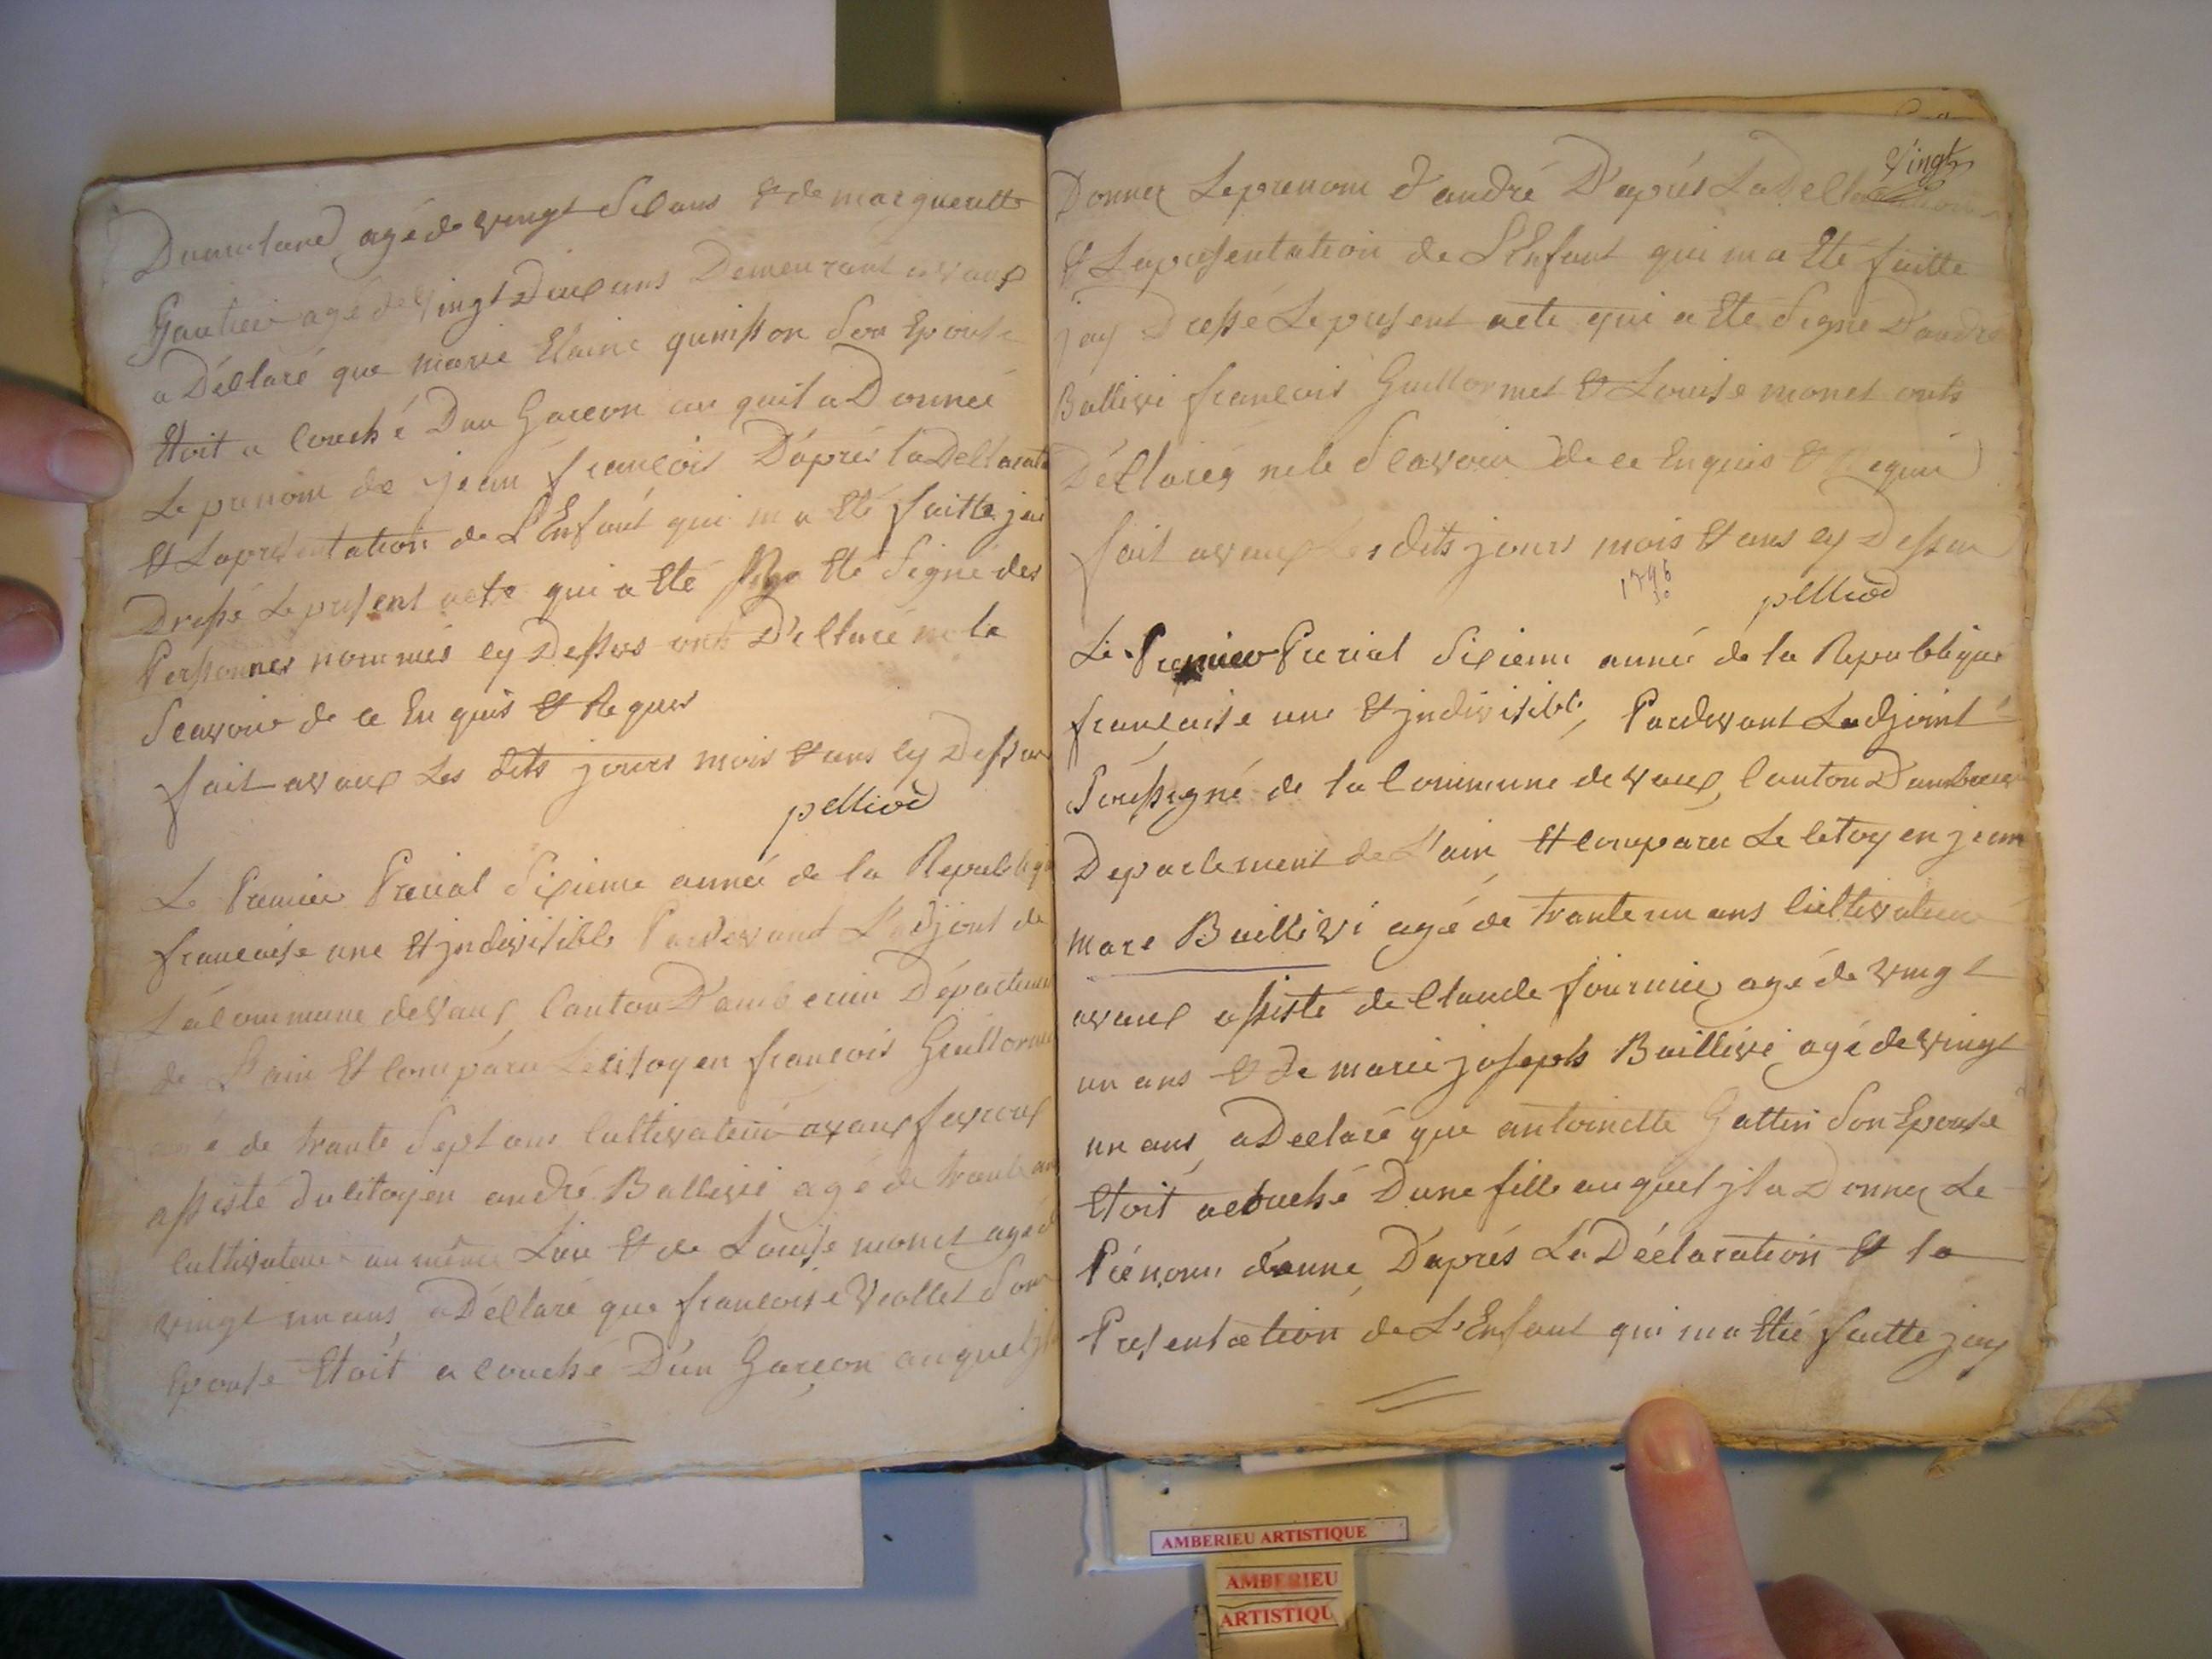 Dumolard agé de vingt Six ans & de margueritte
Gautier agé de vingt Deux ans Demeurant a vaux
a Déclaré que marie Elaine quinsson Son Epouse
Etoit a Couché Dun Garcon au quel a Donnée
Le prenom de jean françois D'aprés la Déllarat
& La presentation de L'Enfant qui m a Eté faitte jai
Dressé Le present acte qui a Eté Eté Signé des
Perssonnes nommés cy Dessus onts Déllaré ne le
Scavoir de ce Enquis & Requis
fait a vaux Les dits jours mois & ans cy Dessus
pelliod
Le Premier Prerial Sixieme année de la Republiq
francaise une & jndivisible Pardevant L'adjoint de
La Commune de vaux Canton D'amberieu Départeme
de L'ain Et Comparu Le Citoyen francois Guillorme
agé de trante Sept ans Cultivateur a vaux
assisté du Citoyen andré Ballivi agé de trante an
Cultivateur au même Lieu & de Louise monet agé d
vingt un ans a Déclaré que francoise Viollet Son
Epouse Etoit a Couché D'un Garcon auquel
vingt
Donner Le prenom d'andré D'aprés La
& La presentation de L'Enfant qui m a Eté faitte
jay Dressé Le present acte qui a Eté Signé D'andré
Ballivi francois Guillormet & Louise monet onts
Déclarés ne le Scavoir de ce Enquis & Requis
fait a vaux Les dits jours mois & ans cy Dessus
1796
pelliod
Le Premier Prerial Sixieme année de la Republique
francaise une & jndivisible, Pardevant Ladjoint
Soussigné de la Commune de vaux, Canton Damberieu
Departement de L'ain, Et Comparu Le Citoyen jean
Marc Baillivi agé de trante un ans Cultivateur
a vaux assisté de Claude fournier agé de vingt
un ans & de marie joseph Baillivi agé de vingt
un ans, a Declaré que antoinette Gattin Son Epouse
Etoit acouché D'une fille auquel jl a Donner Le
Prénom d'anne, D'aprés La Déclaration & la
Presentation de L'Enfant qui ma Eté faitte jay
AMBERIEU ARTISTIQUE
AMBERIEU
ARTISTIQU